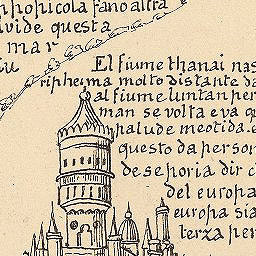 phopicola fano altra
ivide questa
mar
iu
El fiume thanai nas
ripheima molto distante da
al fiume luntan per
man se volta e va q
palude meotida. e
questo da person
de se poria dir c
del europa
europa sia
terza per